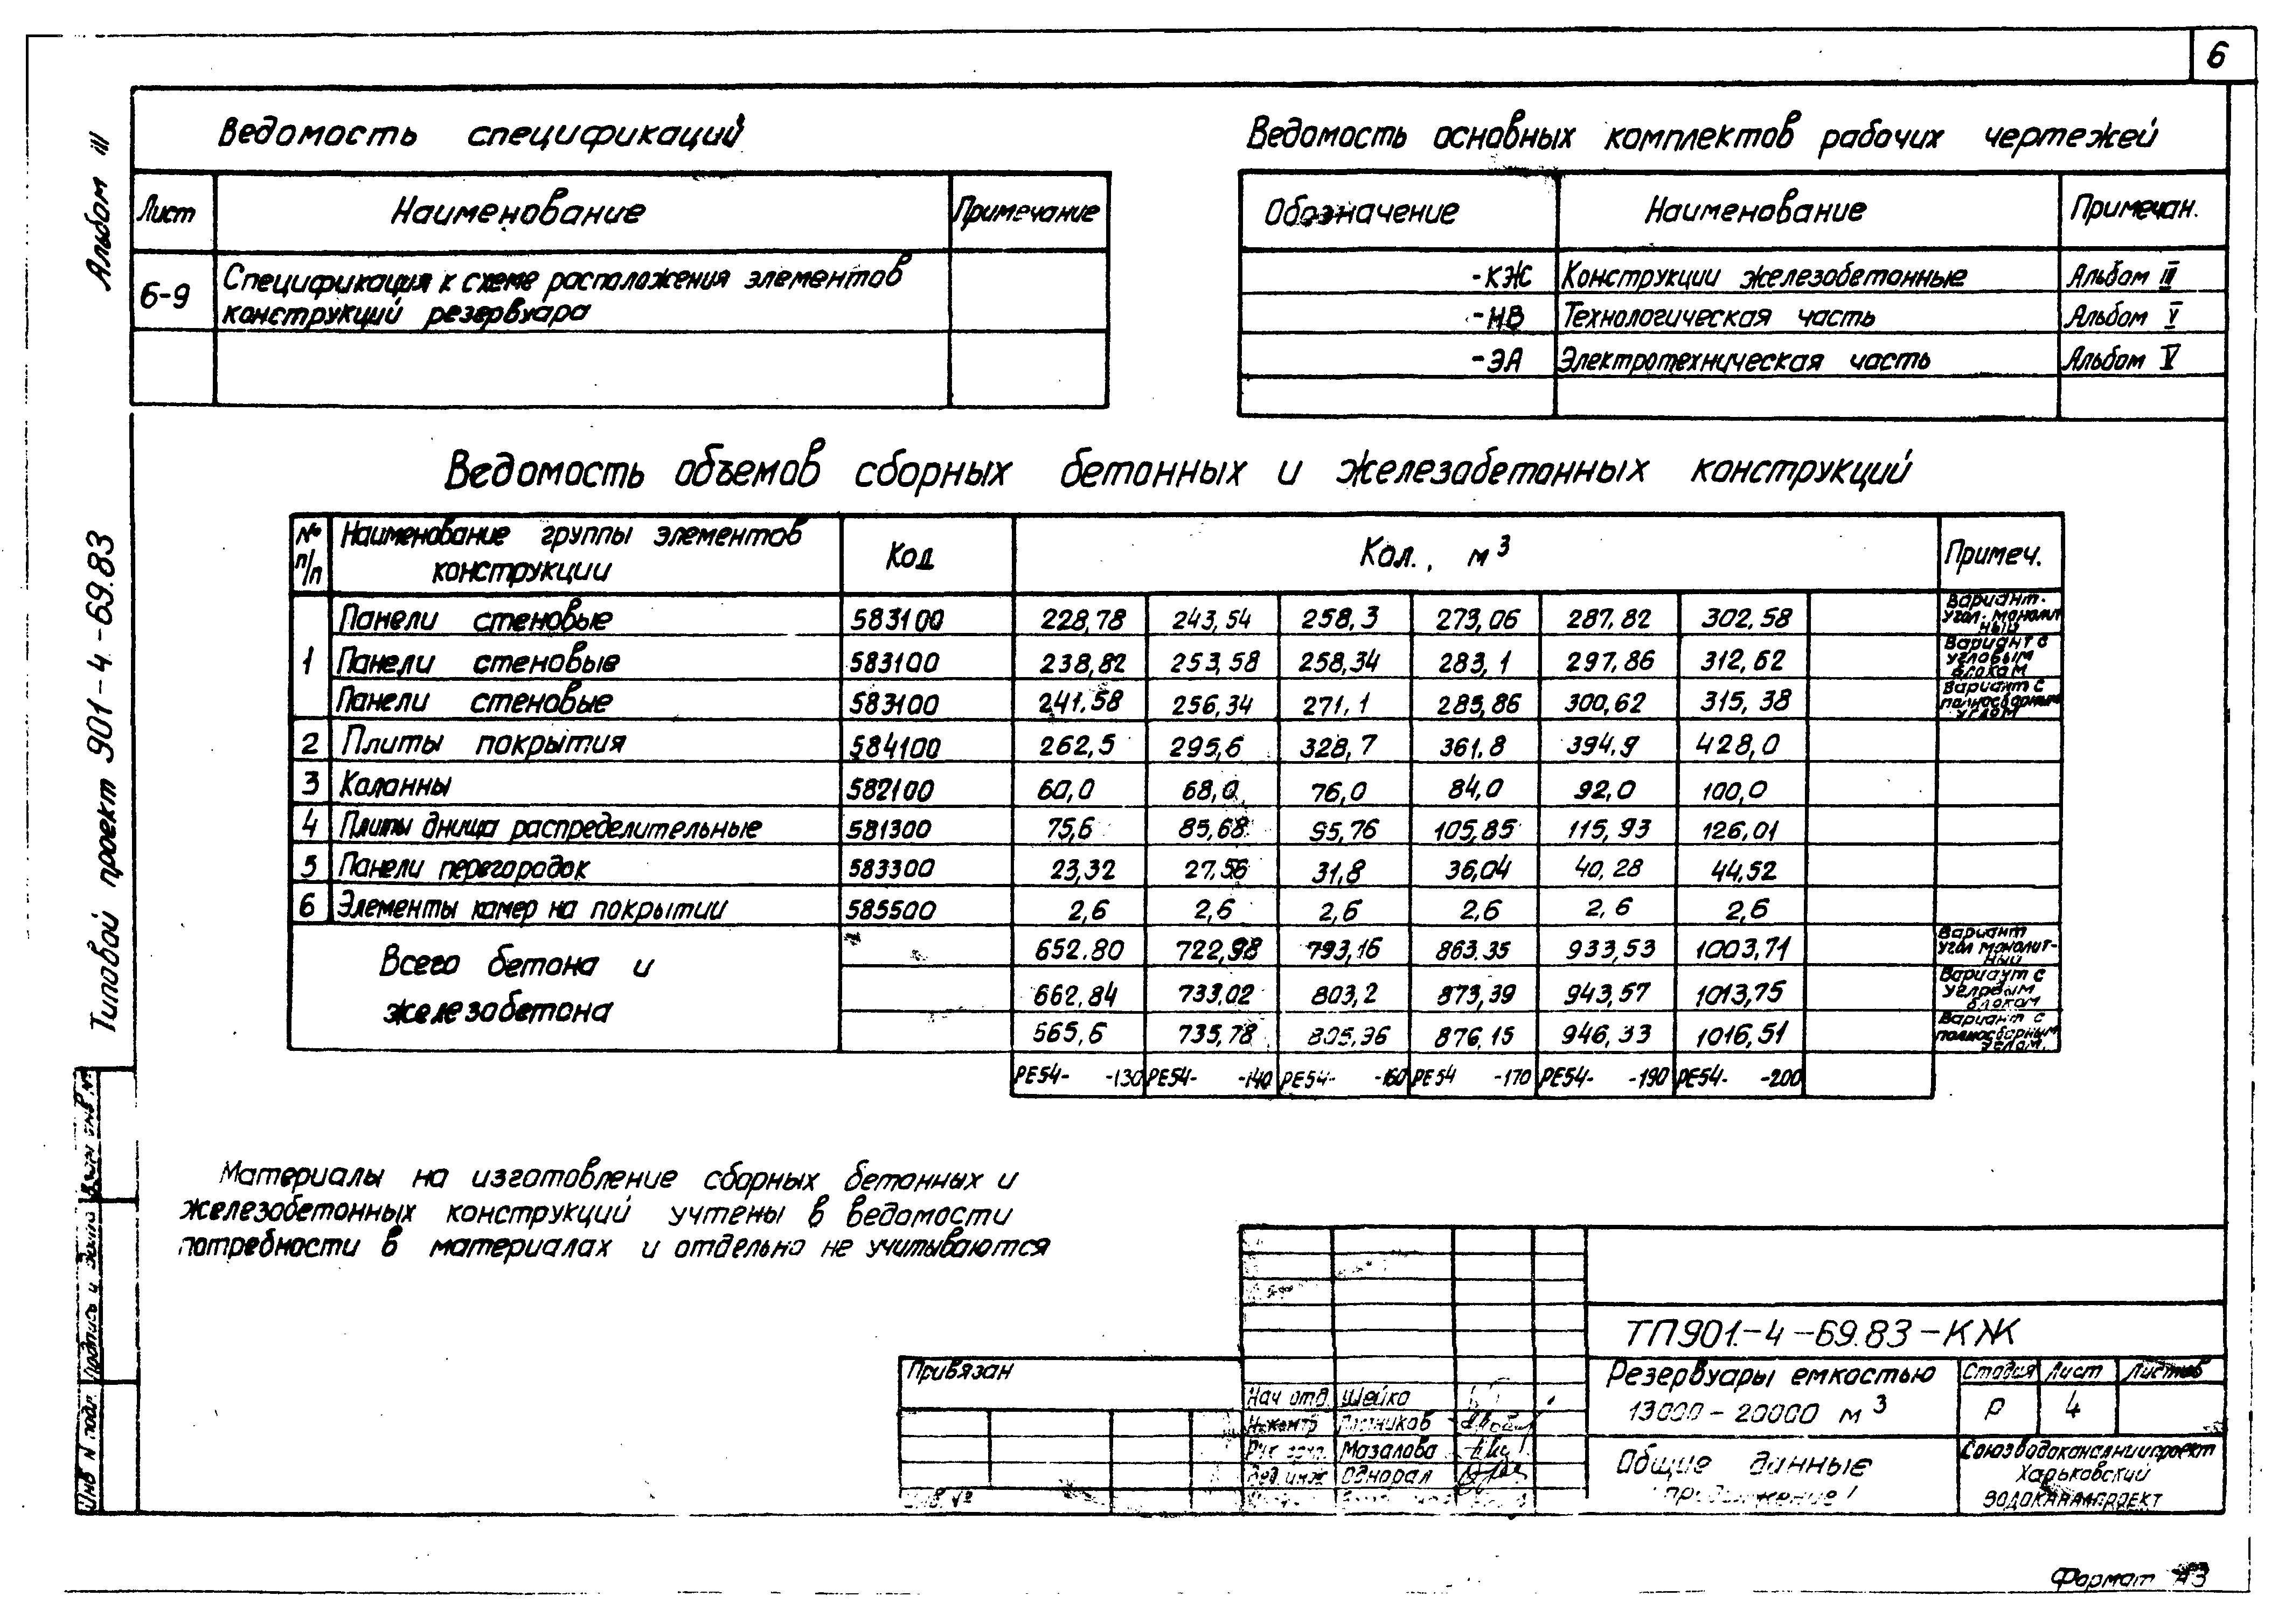 6
Альбом III
Типовой проект 901-4-69.83
Ведомость спецификаций
Лист Наименование Примечание
6-9 Спецификация к схеме расположения элементов
конструкций резервуара
Ведомость основных комплектов рабочих чертежей
Обозначение Наименование Примечан.
-КЖ Конструкции железобетонные Альбом III
-НВ Технологическая часть Альбом V
-ЭА Электротехническая часть Альбом V
Ведомость объемов сборных бетонных и железобетонных конструкций
№ п/п Наименование группы элементов конструкции Код Кол., м³ Примеч.
1 Панели стеновые 583100 228,78 243,54 258,3 273,06 287,82 302,58 Вариант. угол. монолитный
Панели стеновые 583100 238,82 253,58 258,34 283,1 297,86 312,62 Вариант с угловым блоком
Панели стеновые 583100 241.58 256,34 271,1 285,86 300,62 315,38 Вариант с полносборным углом
2 Плиты покрытия 584100 262,5 295,6 328,7 361,8 394,9 428,0
3 Колонны 582100 60,0 68,0 76,0 84,0 92,0 100,0
4 Плиты днища распределительные 581300 75,6 85,68 95,76 105,85 115,93 126,01
5 Панели перегородок 583300 23,32 27,56 31,8 36,04 40,28 44,52
6 Элементы камер на покрытии 585500 2,6 2,6 2,6 2,6 2,6 2,6
Всего бетона и
железобетона
652.80 722,98 793,16 863.35 933,53 1003,71 Вариант угол монолит-ный
662,84 733,02 803,2 873,39 943,57 1013,75 Вариант с угловым блоком
665,6 735,78 805,96 876,15 946,33 1016,51 Вариант с полносборным углом.
РЕ54- -130 РЕ54- -140 РЕ54- -160 РЕ54 -170 РЕ54- -190 РЕ54- -200
Материалы на изготовление сборных бетонных и
железобетонных конструкций учтены в ведомости
потребности в материалах и отдельно не учитываются
Инв N подл. Подпись и дата Взам инв. №
Привязан
Инв №
Нач отд. Шейко
Н.контр
Рук. Мазалова
Вед. инж Однорал
ТП901.-4-69.83-КЖ
Резервуары емкостью
13000-20000 м³
Стадия Лист Листов
Р 4
Общие данные
продолжение
Союзводоканалниипроект
Харьковский
Водоканалпроект
Формат А3